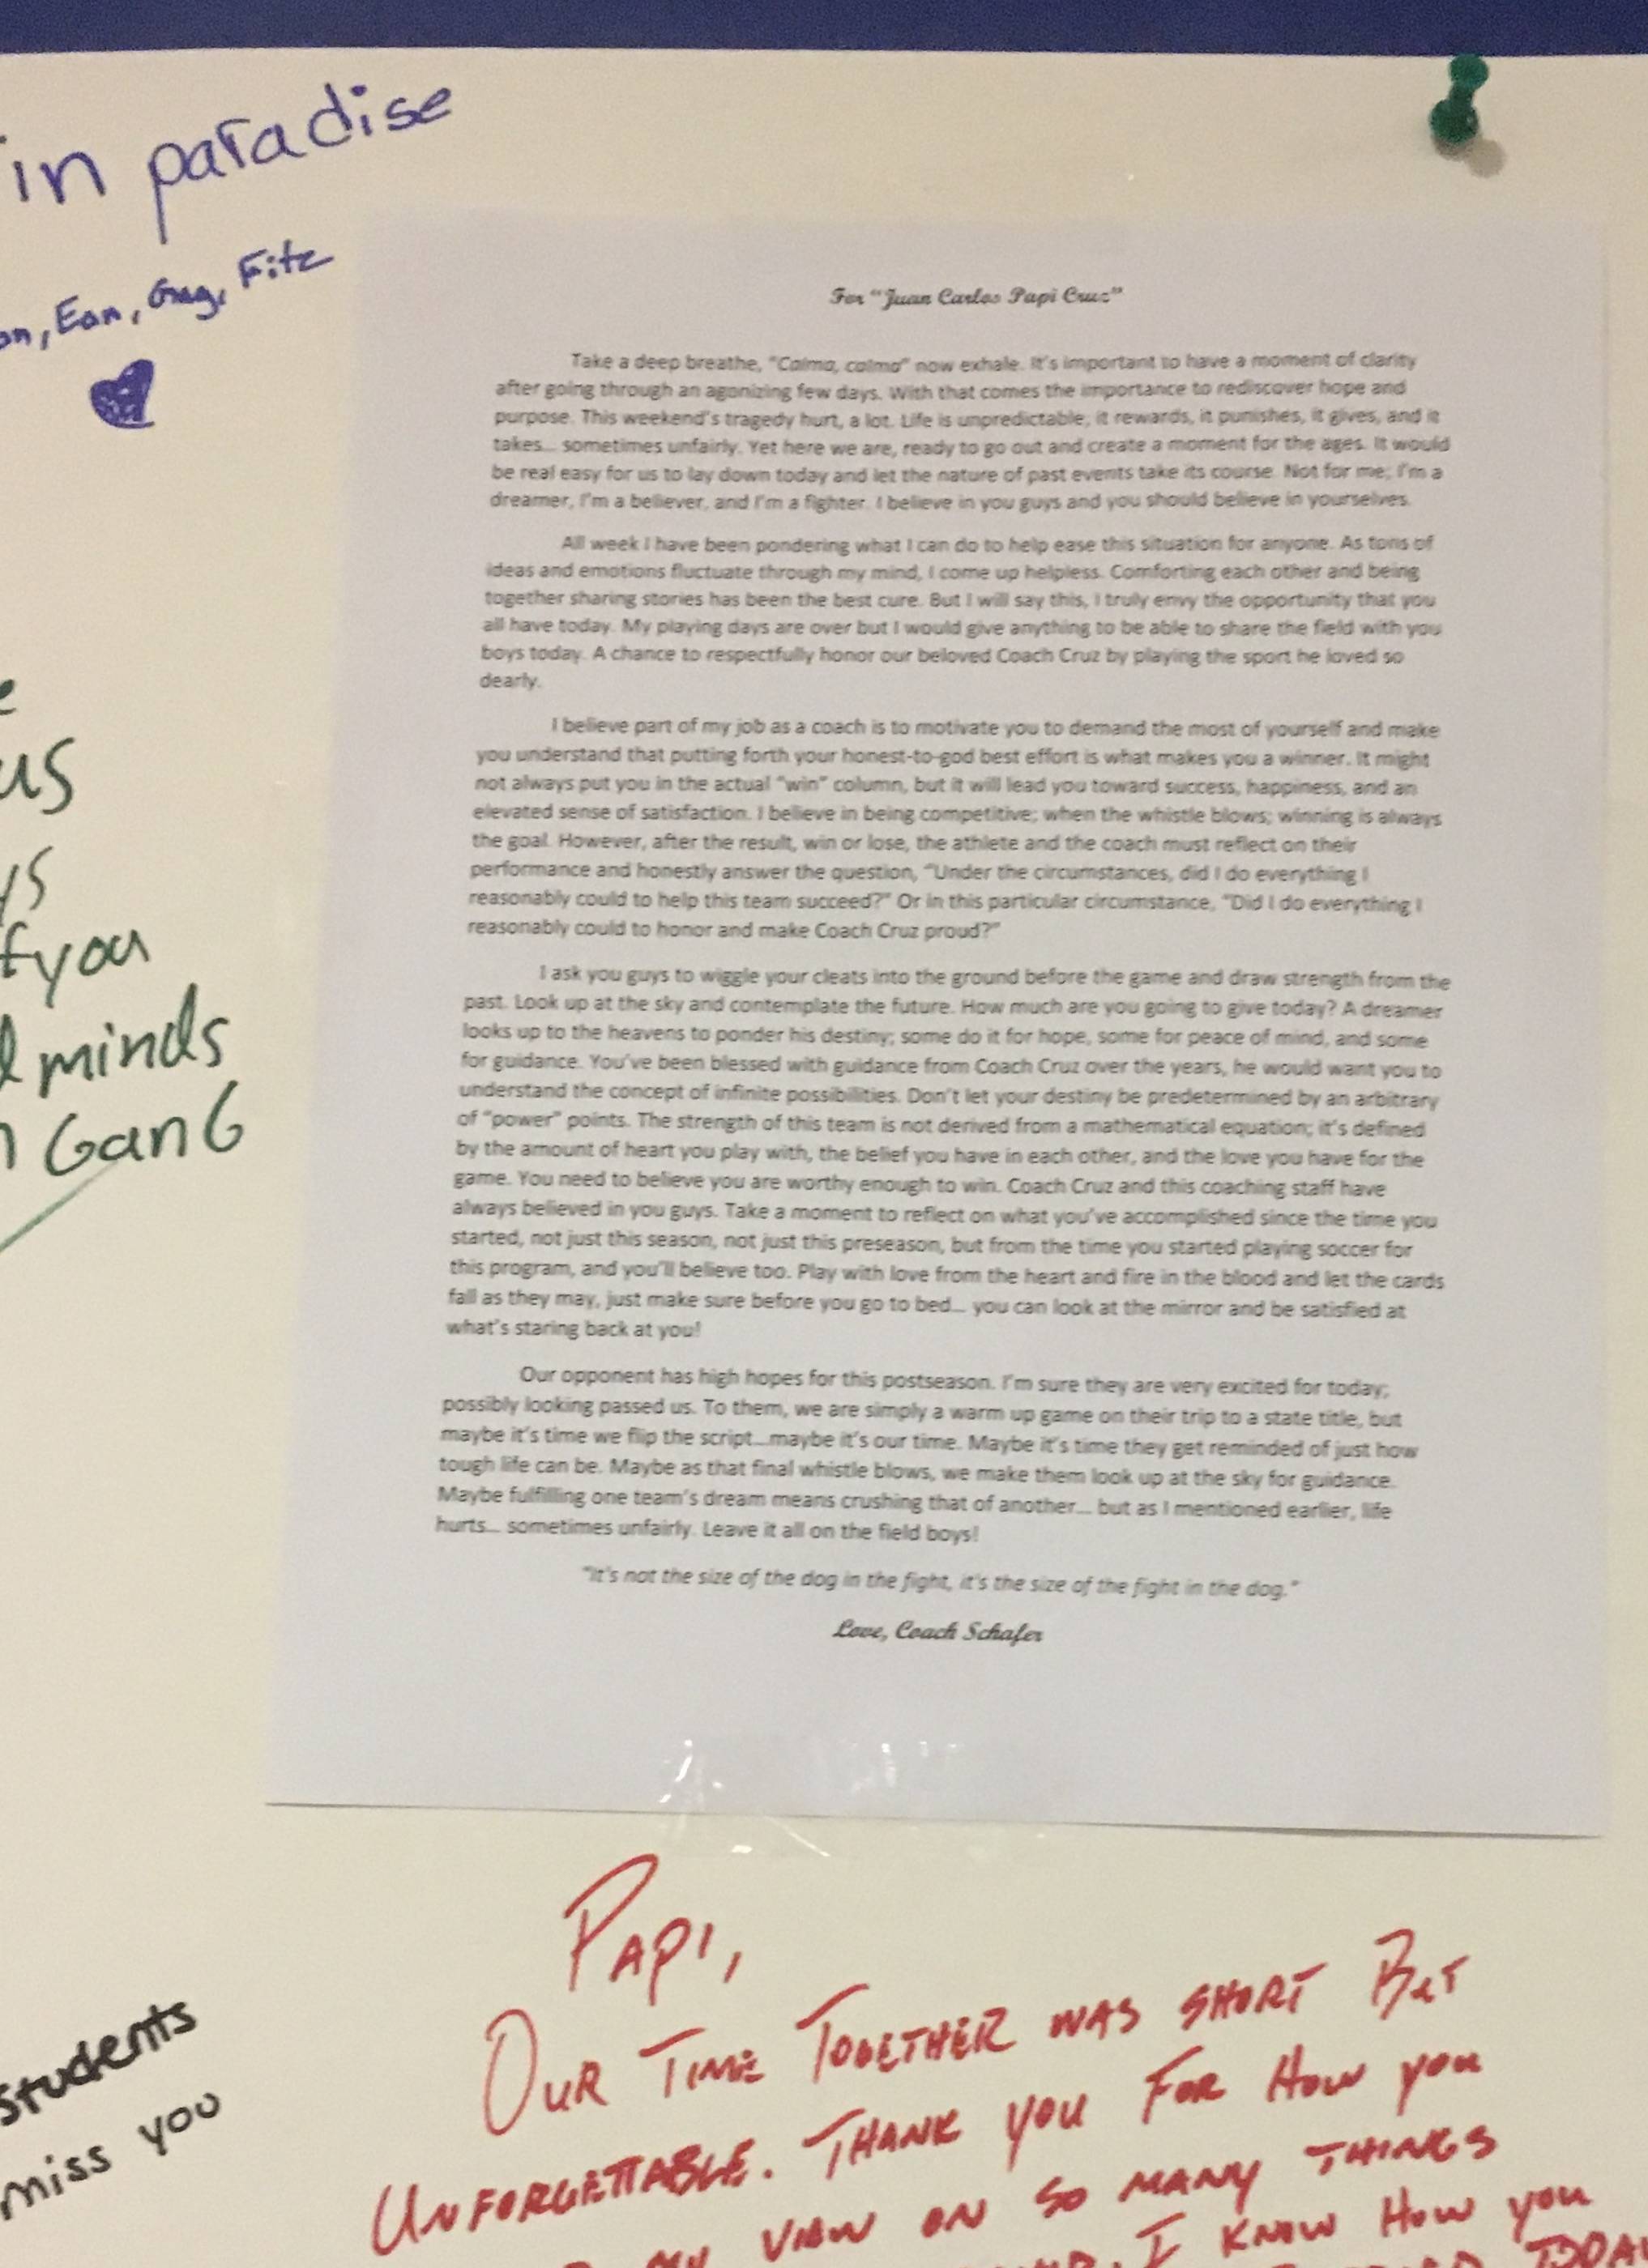 in paradise
Ean, Fitz
For "Juan Carlos Papi Cruz"
Take a deep breathe, "Calma, calma" now exhale. It's important to have a moment of clarity
after going through an agonizing few days. With that comes the importance to rediscover hope and
purpose. This weekend's tragedy hurt, a lot. Life is unpredictable, it rewards, it punishes, it gives, and it
takes... sometimes unfairly. Yet here we are, ready to go out and create a moment for the ages. It would
be real easy for us to lay down today and let the nature of past events take its course. Not for me; I'm a
dreamer, I'm a believer, and I'm a fighter. I believe in you guys and you should believe in yourselves.
All week I have been pondering what I can do to help ease this situation for anyone. As tons of
ideas and emotions fluctuate through my mind, I come up helpless. Comforting each other and being
together sharing stories has been the best cure. But I will say this, I truly envy the opportunity that you
all have today. My playing days are over but I would give anything to be able to share the field with you
boys today. A chance to respectfully honor our beloved Coach Cruz by playing the sport he loved so
dearly.
I believe part of my job as a coach is to motivate you to demand the most of yourself and make
you understand that putting forth your honest-to-god best effort is what makes you a winner. It might
not always put you in the actual "win" column, but it will lead you toward success, happiness, and an
elevated sense of satisfaction. I believe in being competitive; when the whistle blows; winning is always
the goal. However, after the result, win or lose, the athlete and the coach must reflect on their
performance and honestly answer the question, "Under the circumstances, did I do everything I
reasonably could to help this team succeed?" Or in this particular circumstance, "Did I do everything I
reasonably could to honor and make Coach Cruz proud?"
I ask you guys to wiggle your cleats into the ground before the game and draw strength from the
past. Look up at the sky and contemplate the future. How much are you going to give today? A dreamer
looks up to the heavens to ponder his destiny; some do it for hope, some for peace of mind, and some
for guidance. You've been blessed with guidance from Coach Cruz over the years, he would want you to
understand the concept of infinite possibilities. Don't let your destiny be predetermined by an arbitrary
of "power" points. The strength of this team is not derived from a mathematical equation; it's defined
by the amount of heart you play with, the belief you have in each other, and the love you have for the
game. You need to believe you are worthy enough to win. Coach Cruz and this coaching staff have
always believed in you guys. Take a moment to reflect on what you've accomplished since the time you
started, not just this season, not just this preseason, but from the time you started playing soccer for
this program, and you'll believe too. Play with love from the heart and fire in the blood and let the cards
fall as they may, just make sure before you go to bed... you can look at the mirror and be satisfied at
what's staring back at you!
Our opponent has high hopes for this postseason. I'm sure they are very excited for today;
possibly looking passed us. To them, we are simply a warm up game on their trip to a state title, but
maybe it's time we flip the script...maybe it's our time. Maybe it's time they get reminded of just how
tough life can be. Maybe as that final whistle blows, we make them look up at the sky for guidance.
Maybe fulfilling one team's dream means crushing that of another... but as I mentioned earlier, life
hurts... sometimes unfairly. Leave it all on the field boys!
"It's not the size of the dog in the fight, it's the size of the fight in the dog."
Love, Coach Schafer
us
you
minds
GanG
Students
miss you
Papi,
Our Time Together was short But
Unforgettable. Thank you For How you
view on so many things
I know How you